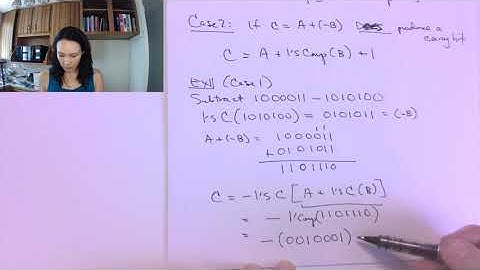 Case 2: If C = A+(-B) Does produce a carry bit
C = A + 1's Comp(B) + 1
Ex11 (Case 1)
Subtract 1000011 - 1010100
1's C(1010100) = 0101011 = (-B)
A+(-B) = 1000011
+0101011
1101110
C = -1's C [A + 1's C(B)]
= - 1'Comp(1101110)
= -(0010001)